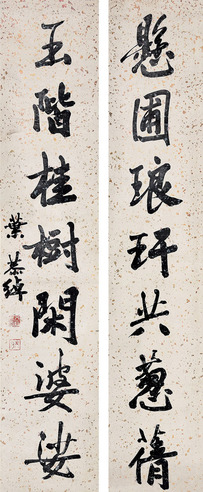 懸圃琅玕共蔥蒨
玉階桂樹閑婆娑
葉恭綽